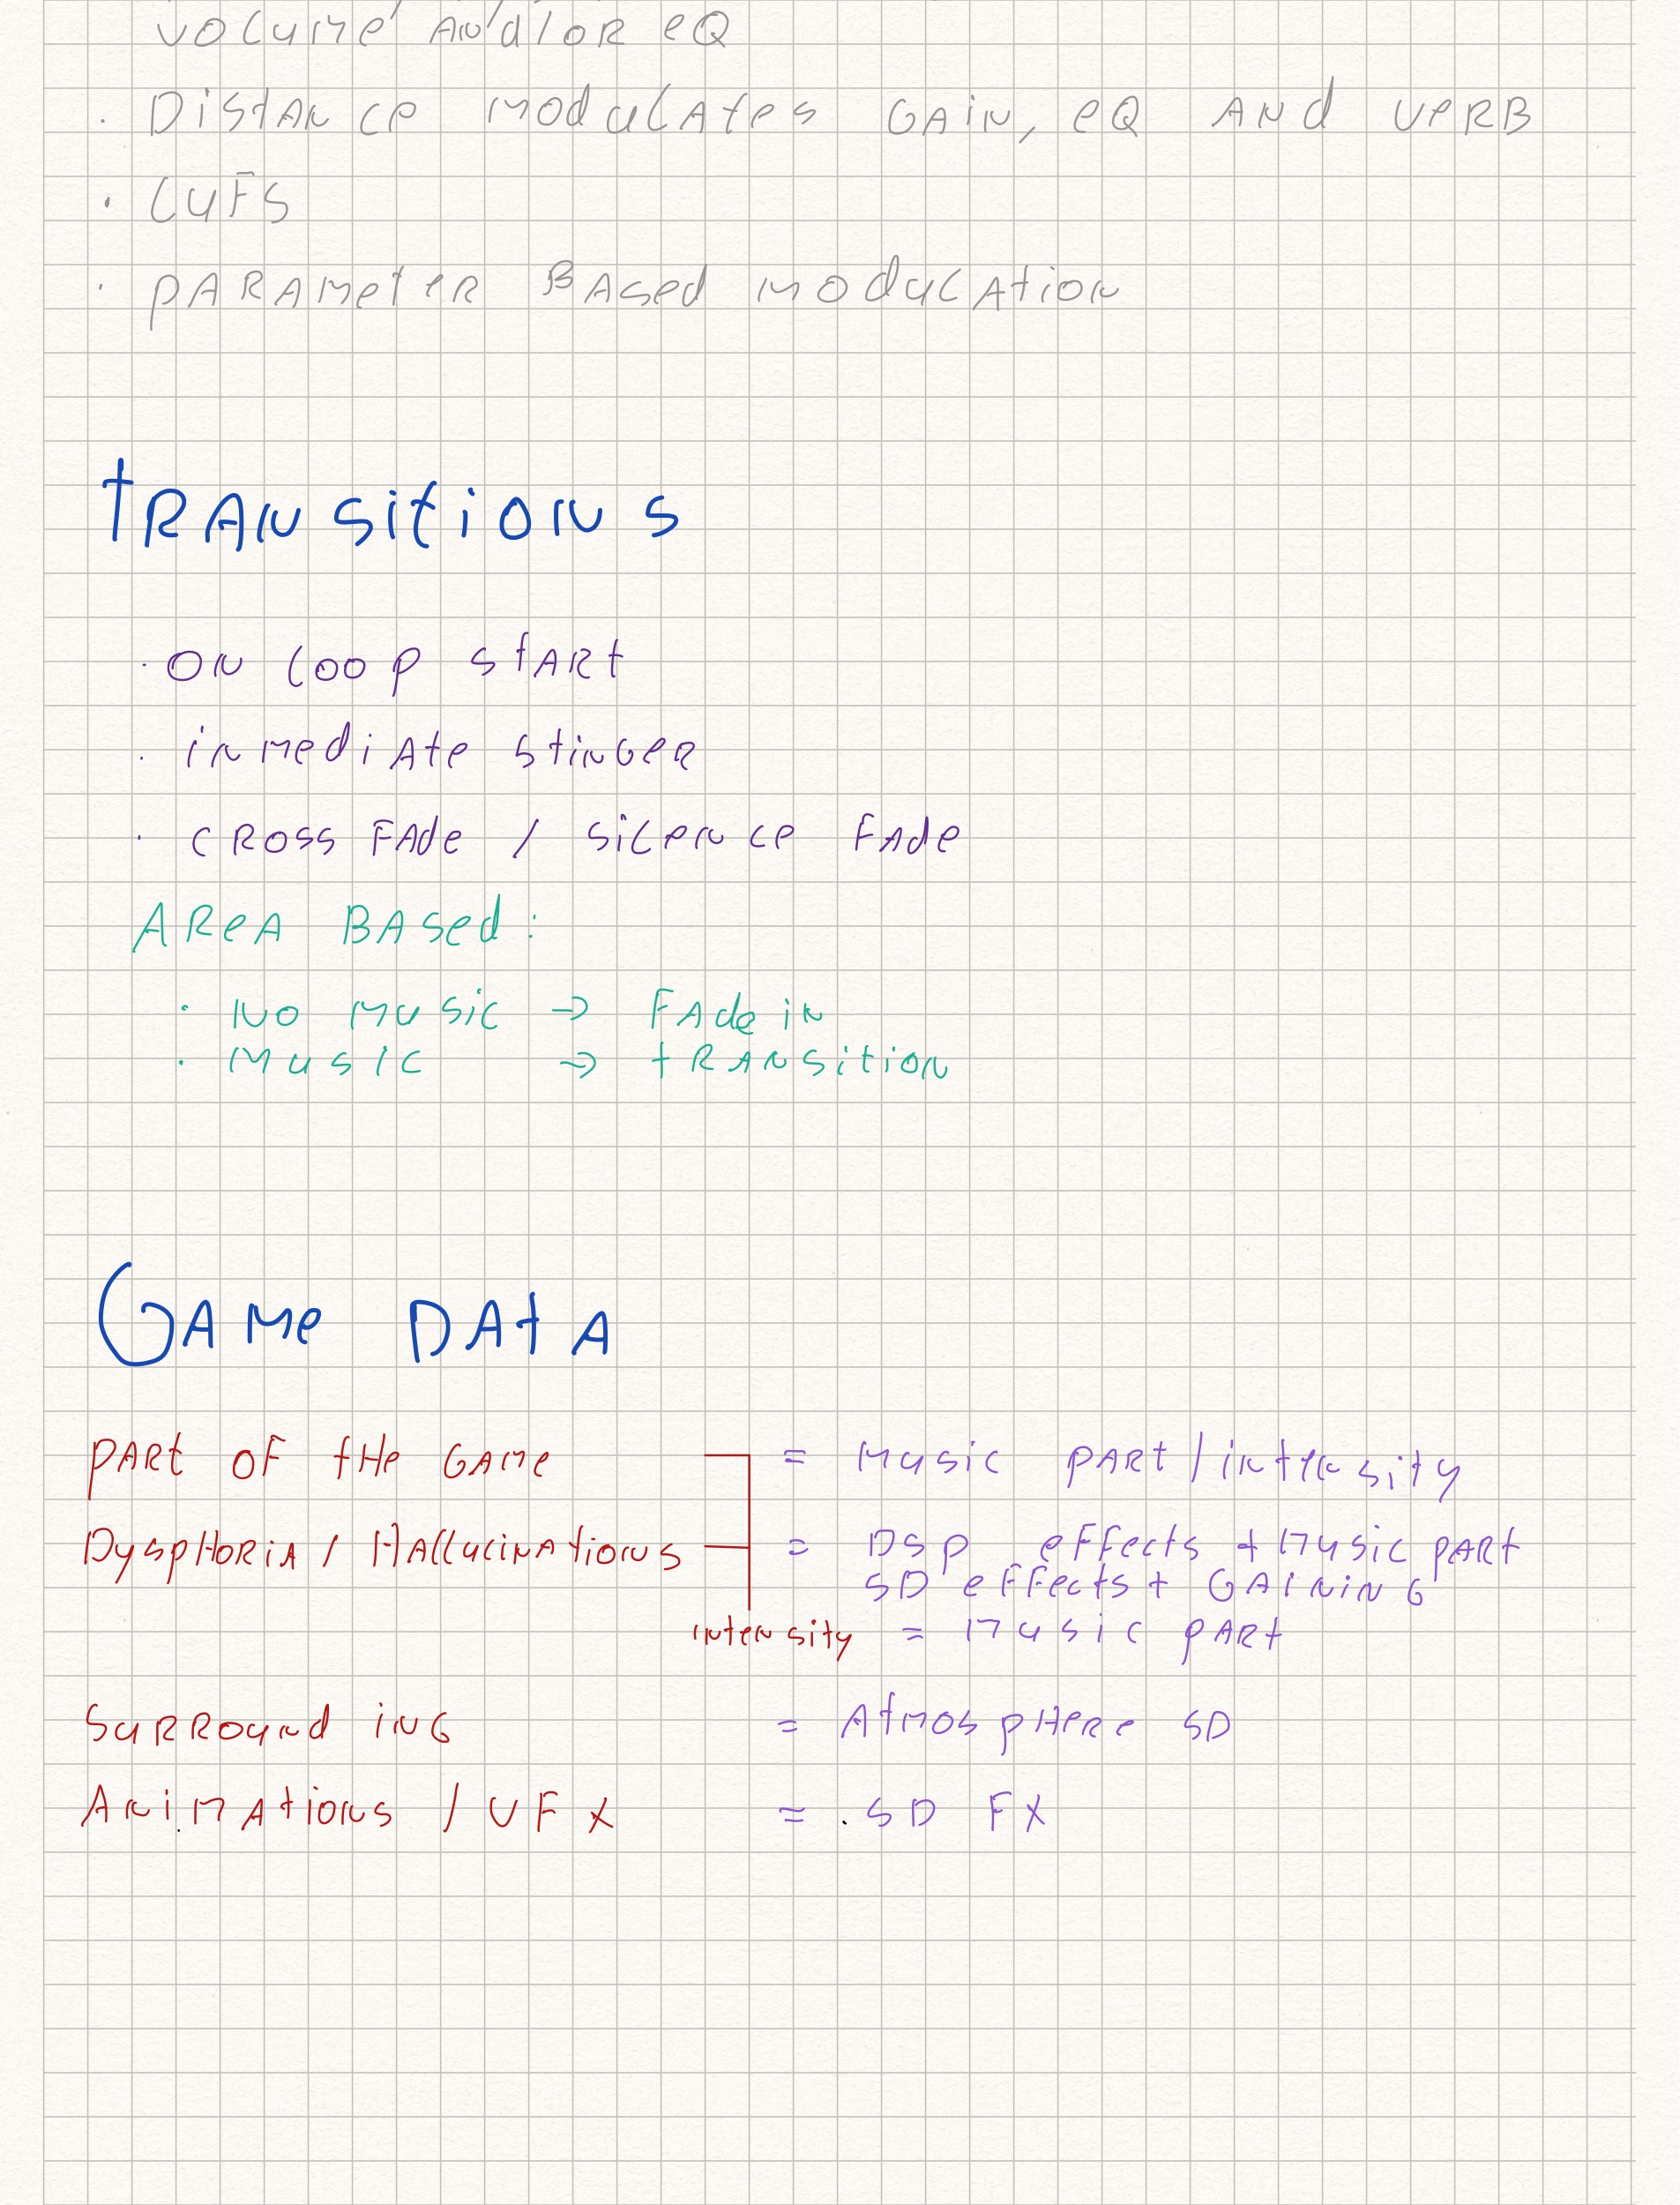 volume and/or eQ
· Distance modulates Gain, eQ and verb
· LUFS
· parameter Based modulation
transitions
· on loop start
· inmediate stinger
· cross Fade / silence Fade
Area Based:
· No music → Fade in
· music → transition
Game Data
part of the Game = Music part/intensity
DyspHoria / Hallucinations = Dsp effects + Music part
SD effects + Gaining
intensity = Music part
Surrounding = Atmosphere SD
Animations / VFX = SD FX